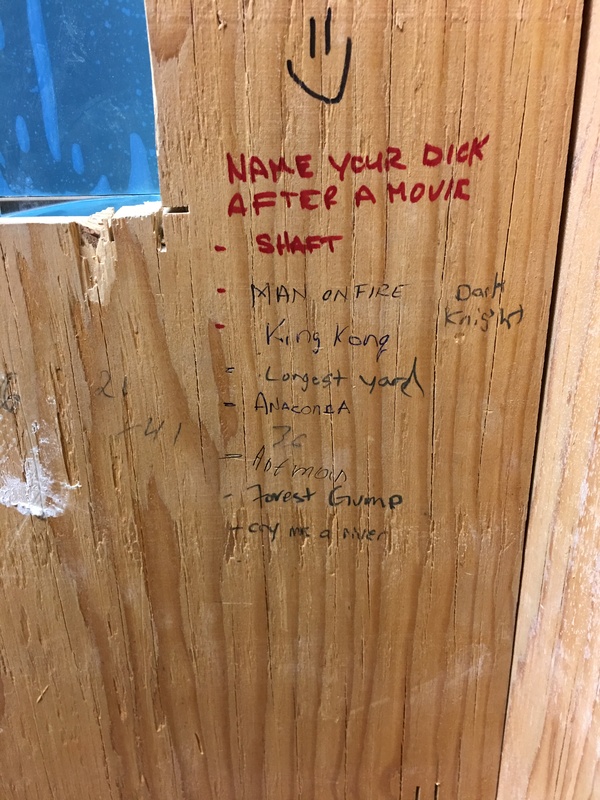 NAME YOUR DICK
AFTER A MOVIE
- SHAFT
- MAN ON FIRE
Dark
Knight
- King Kong
- Longest yard
- ANACONDA
21
-41
36
- Ant man
- Forest Gump
+ cry me a river